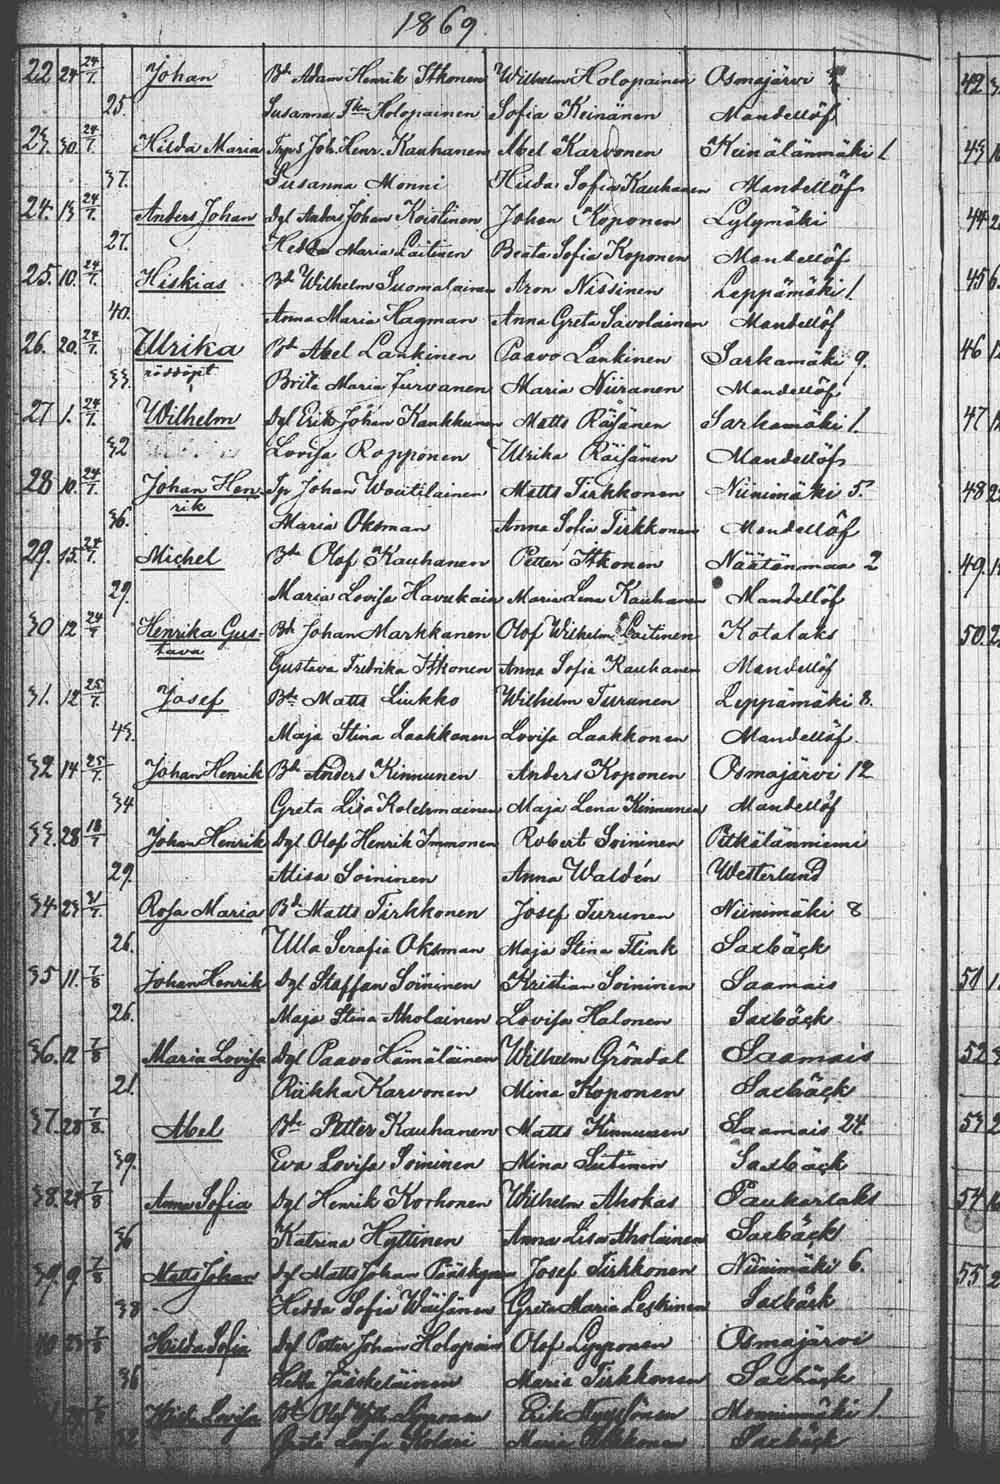 1869.
22 24 24/7. Johan Bd Adam Henrik Itkonen Wilhelm Holopainen Osmajärvi
25. Susanna Holopainen Sofia Keinänen Mandellöf
23. 30. 24/7. Hilda Maria Joh. Henr. Kauhanen Abel Karvonen Keinälänmäki 1
37. Susanna Monni Hilda Sofia Kauhanen Mandellöf
24. 13 24/7. Anders Johan Dgl Anders Johan Koistinen Johan Koponen Lylymäki
27. Hedda Maria Laitinen Beata Sofia Koponen Mandellöf
25. 10. 24/7. Hiskias Bd Wilhelm Suomalainen Aron Nissinen Leppämäki 1.
40. Anna Maria Hagman Anna Greta Savolainen Mandellöf
26. 20. 24/7. Ulrika Bd Abel Lankinen Paavo Lankinen Sarkamäki 9.
33. Brita Maria Turvanen Maria Niiranen Mandellöf
27 1. 24/7. Wilhelm Dgl Erik Johan Kaukkunen Matts Räisänen Sarkamäki 1.
32 Lovisa Ropponen Ulrika Räisänen Mandellöf
28 10. 24/7. Johan Hen- Johan Woutilainen Matts Tirkkonen Niinimäki 5.
rik
36. Maria Oksman Anna Sofia Tirkkonen Mandellöf
29. 15. 24/7. Michel Bd Olof Kauhanen Petter Itkonen Näätänmaa 2
29. Maria Lovisa Havukain Maria Lena Kauhanen Mandellöf
30 12 24/7 Henrika Gus- Bd Johan Markkanen Olof Wilhelm Laitinen Kotalaks
tava
Gustava Fredrika Itkonen Anna Sofia Kauhanen Mandellöf
31. 12 25/7. Josef Bd Matts Liukko Wilhelm Turunen Leppämäki 8.
43. Maja Stina Laakkonen Lovisa Laakkonen Mandellöf.
32 14 25/7. Johan Henrik Bd Anders Kinnunen Anders Koponen Osmajärvi 12
34 Greta Lisa Kolehmainen Maja Lena Kinnunen Mandellöf
33. 28 18/7 Johan Henrik Dgl Olof Henrik Immonen Robert Soininen Pitkälänniemi
29. Alisa Soininen Anna Waldén Westerlund
34. 23 31/7. Rosa Maria Bd Matts Tirkkonen Josef Turunen Niinimäki 8
26. Ulla Serafia Oksman Maja Stina Flink Saxbäck
35 11. 7/8 Johan Henrik Dgl Staffan Soininen Kristian Soininen Saamais
26. Maja Stina Aholainen Lovisa Halonen Saxbäck
36. 12 7/8 Maria Lovisa Dgl Paavo Hämäläinen Wilhelm Gröndal Saamais
21. Riikka Karvonen Mina Koponen Saxbäck
37. 28 7/8. Abel Bd Petter Kauhanen Matts Kinnunen Saamais 24.
39. Eva Lovisa Soininen Mina Sutinen Saxbäck
38. 24 7/8 Anna Sofia Dgl Henrik Korhonen Wilhelm Ahokas Paukarlaks
36 Katrina Hyttinen Anna Lisa Aholainen Saxbäck
39. 9. 7/8 Matts Johan Dgl Matts Johan Pääskynen Josef Tirkkonen Niinimäki 6.
38 Hedda Sofia Wäisänen Greta Maria Leskinen Saxbäck
40 23 7/8 Hilda Sofia Dgl Petter Johan Holopain Olof Lipponen Osmajärvi
36 Hedda Jääskeläinen Maria Tirkkonen Saxbäck
Lovisa Bd Olof Wilh. Lipponen Erik Monnimäki 1.
Greta Lovisa Kolari Maria Saxbäck
42
43
44
45
46
47
48
49.
50.
51
52
53
54
55